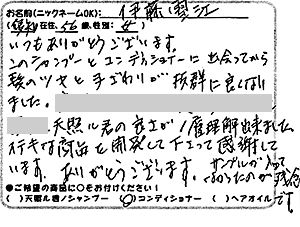 お名前(ニックネームOK): 伊藤
在住, 56歳, 性別: 女
いつもありがとうございます。
このシャンプーとコンディショナーに出会ってから
髪のツヤと手ざわりが抜群に良くなり
ました。
天照ル君の良さが1層理解出来ました。
ステキな商品を開発して下さって感謝して
います。ありがとうございます。
サンプルが入って
なかったのが残念
です
●ご希望の商品に○をお付けください!
( )天照ル君/シャンプー (○)コンディショナー ( )ヘアオイル